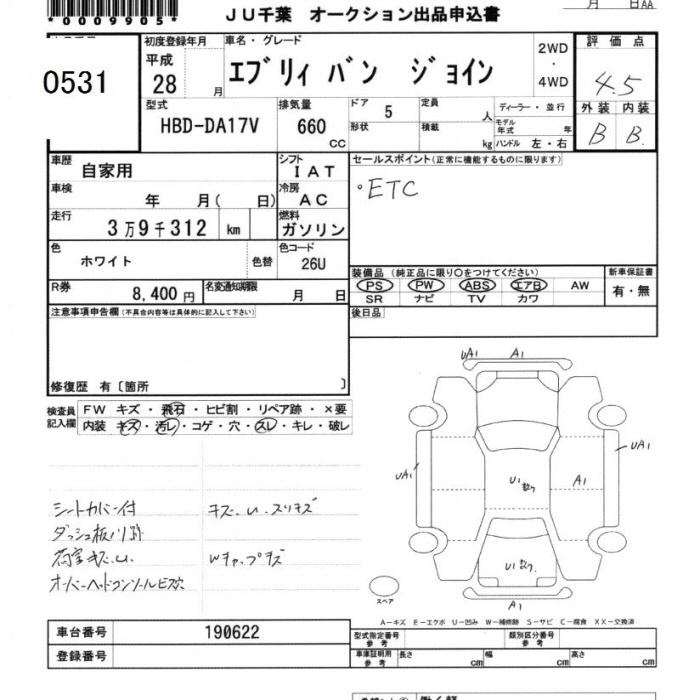 *0009905*
JU千葉 オークション出品申込書
月 日AA
0531
初度登録年月
平成
28 月
車名・グレード
エブリィ バン ジョイン
2WD
・
4WD
評価点
4.5
外装 内装
B B
型式
HBD-DA17V
排気量
660
CC
ドア
5
形状
定員
人
積載
kg
ディーラー・並行
モデル年式 年
ハンドル 左・右
車歴
自家用
車検
年 月( 日)
走行
3万9千312 km
色
ホワイト
色替
R券
8,400円
名変通知期限
月 日
シフト
IAT
冷房
AC
燃料
ガソリン
色コード
26U
セールスポイント(正常に機能するものに限ります)
・ETC
装備品 (純正品に限り○をつけてください)
PS PW ABS エアB AW
SR ナビ TV カワ
新車保証書
有・無
後日品
注意事項申告欄(不具合内容等は具体的に記入して下さい)
修復歴 有〔箇所 〕
検査員記入欄
FW キズ・飛石・ヒビ割・リペア跡・×要
内装 キズ・汚レ・コゲ・穴・スレ・キレ・破レ
シートカバー付
ダッシュ板ハリ跡
荷室キズ.U.
オーバーヘッドコンソールビス穴
キズ.U.スリキズ
Wチップキズ
UA1
A1
UA1
UA1
A1
U1
U1
A1
スペア
A−キズ E−エクボ U−凹み W−補修跡 S−サビ C−腐食 XX−交換済
車台番号
190622
登録番号
型式指定番号
参考
類別区分番号
参考
車庫証明用
参考
長さ
cm
幅
cm
高さ
cm